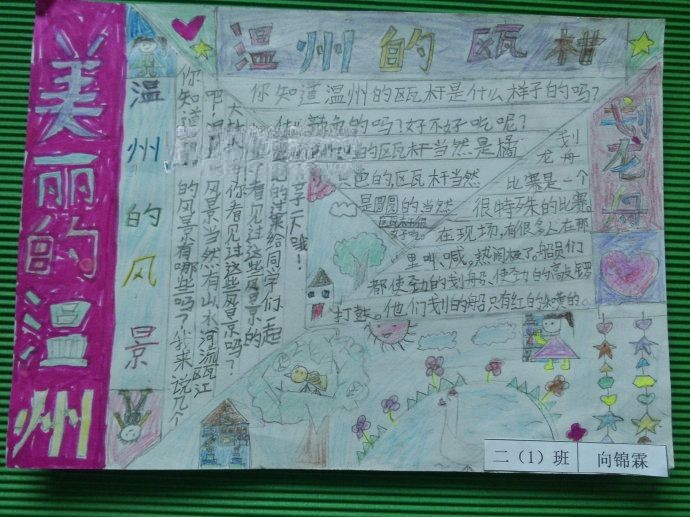 美丽的温州
温州的风景
你知道温州的风景有哪些吗?我来说几个
吧!温州风景当然有山水河流瓯江
你看见过这些风景吗?
看见过这些风景的
给同学们一起
享一天哦!
温州的瓯柑
你知道温州的瓯杆是什么样子的吗?
什么颜色的吗?好不好吃呢?
的瓯杆当然是橘
色的,瓯杆当然
是圆圆的当然
划龙舟
划龙舟
比赛是一个
很特殊的比赛。
在现场,有很多人在那
里叫、喊。热闹极了。船员们
都使劲的划船、使劲的高敲锣
打鼓。他们划的船只有红的绿的。
二（1）班
向锦霖